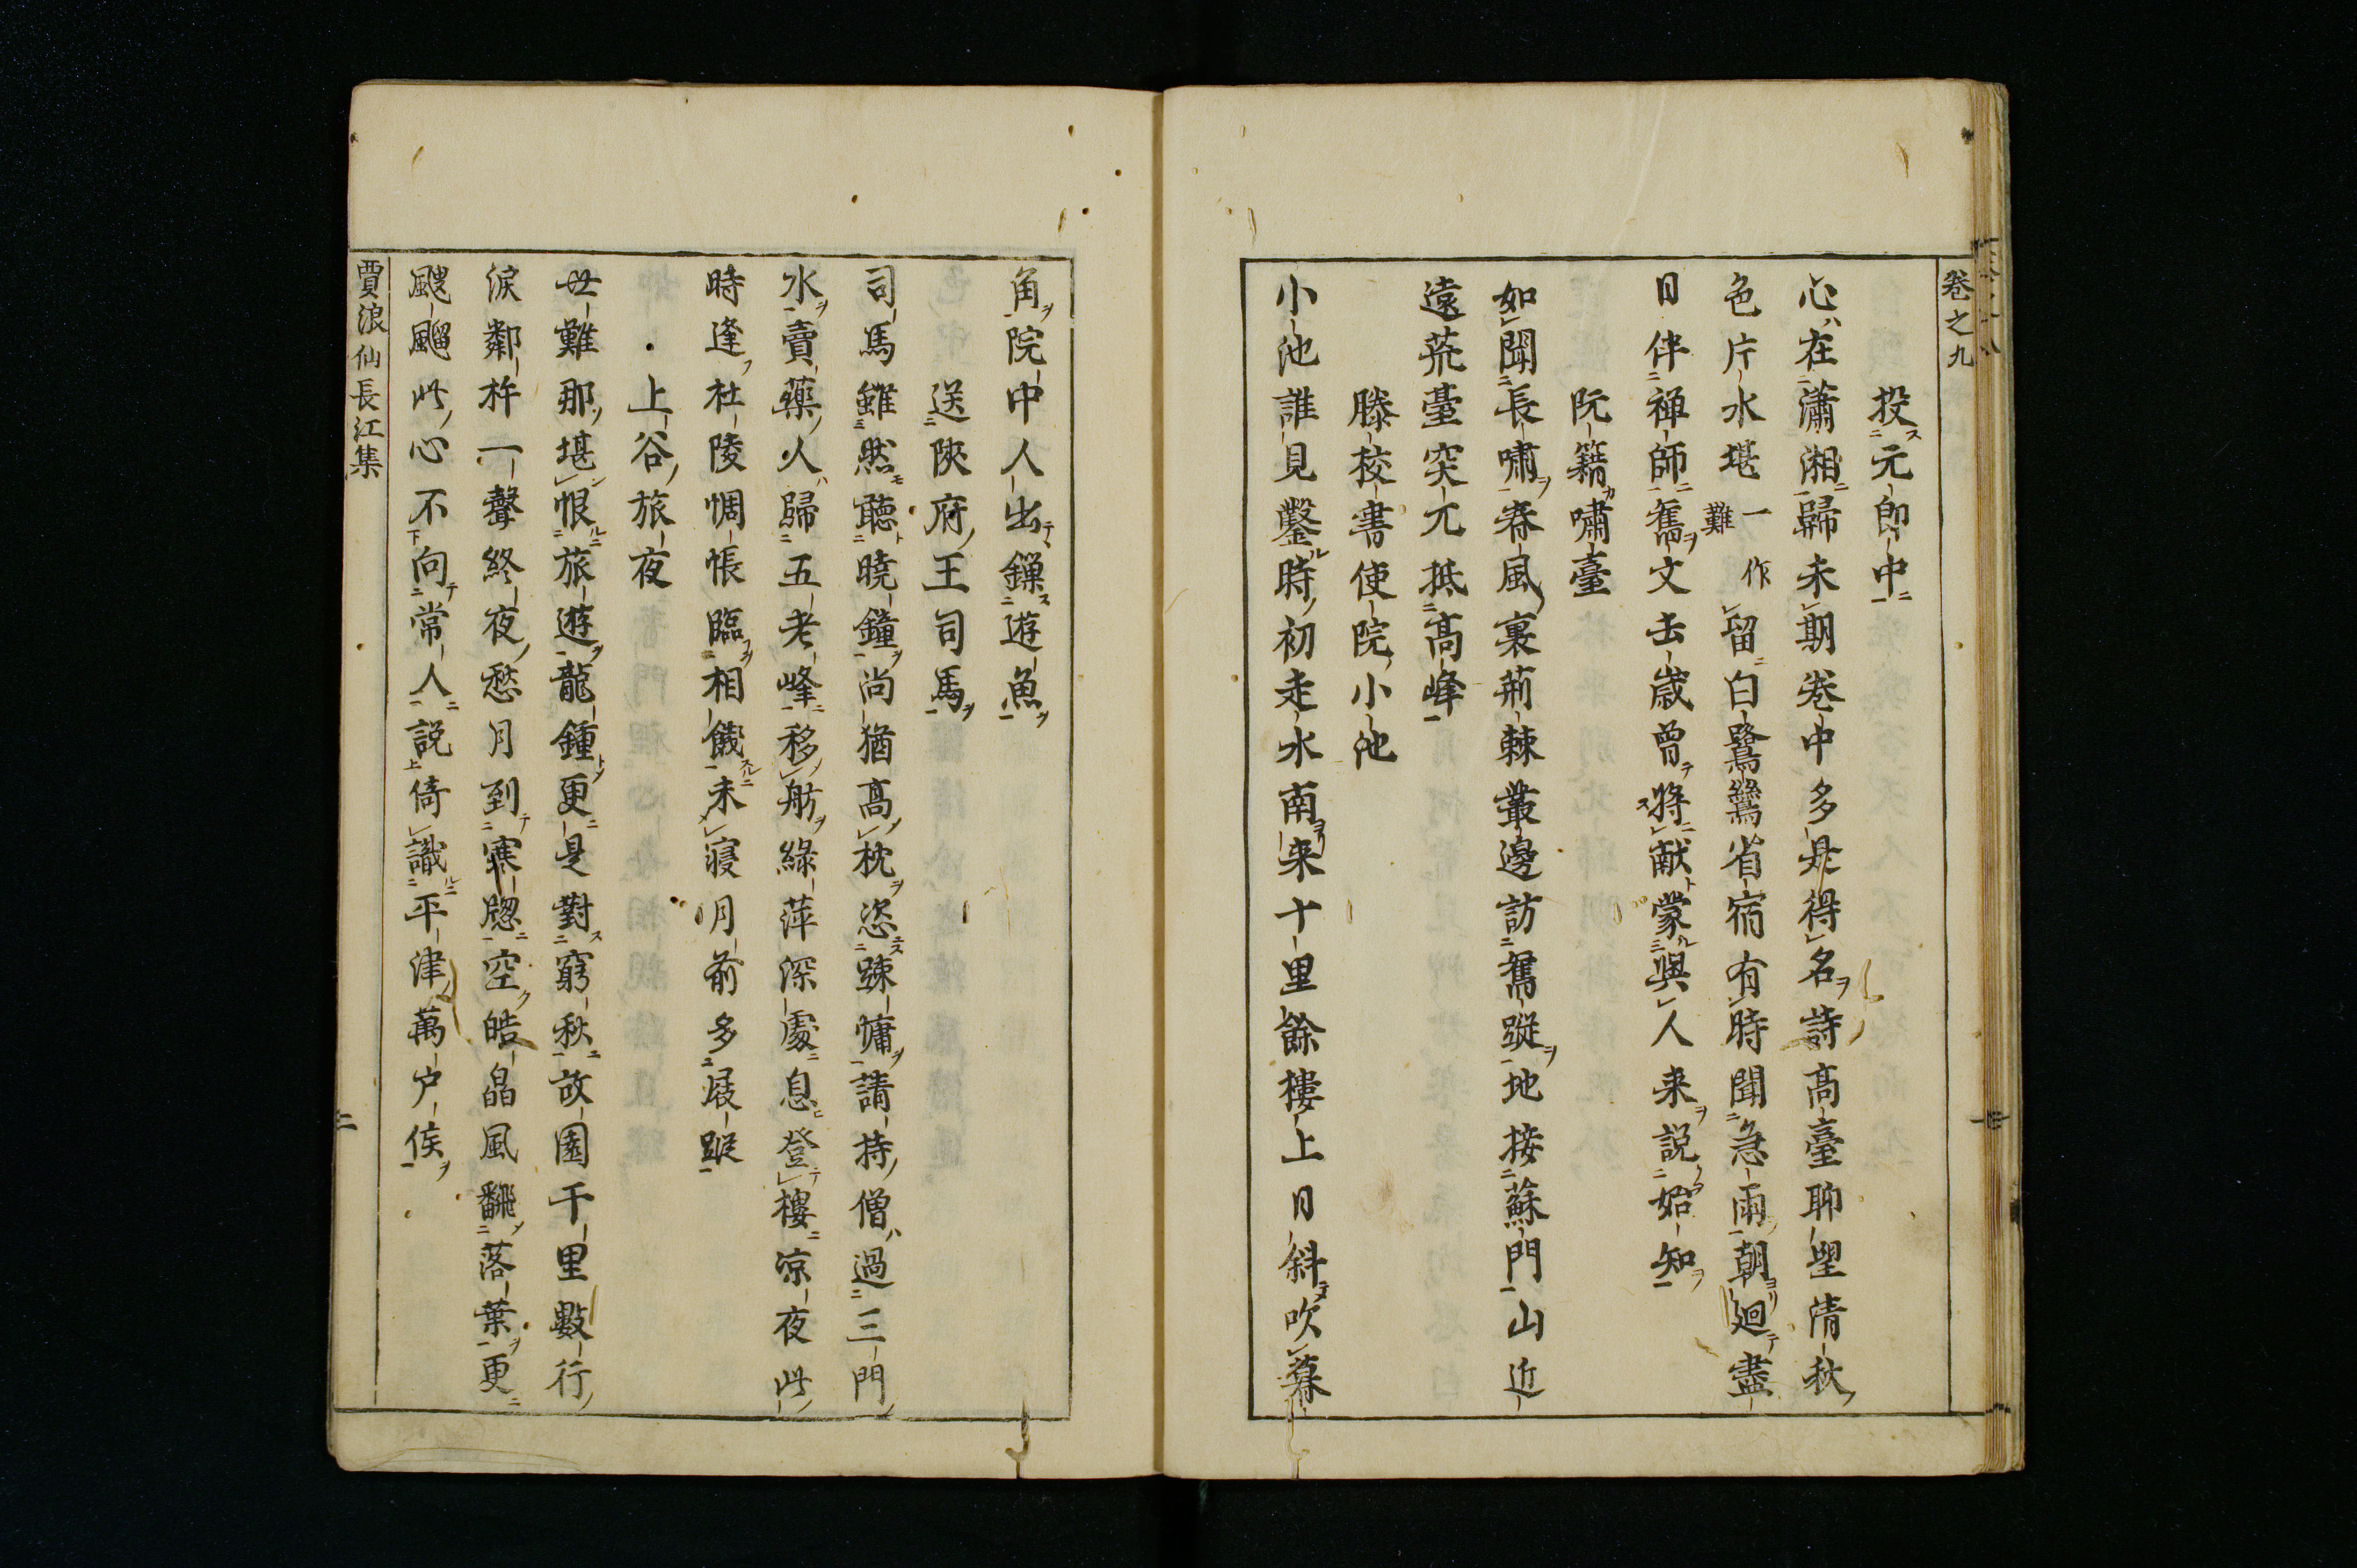 卷之九
投元郎中
心在瀟湘歸未期卷中多是得名詩高臺聊望清秋
色片水堪一作難留白鷺鷥省宿有時聞急雨朝廻盡
日伴禅師舊文去歲曾將献蒙與人来説始知
阮籍嘯臺
如聞長嘯春風裏荊棘叢邊訪舊蹤地接蘇門山近
遠荒臺突兀抵高峰
滕校書使院小池
小池誰見鑿時初走水南来十里餘樓上日斜吹暮
角院中人出鏁遊魚
送陝府王司馬
司馬雖然聽曉鐘尚猶高枕恣踈慵請持僧過三門
水賣藥人歸五老峰移舫綠萍深處息登樓凉夜此
時逢杜陵惆悵臨相餞未寝月前多屐蹤
上谷旅夜
世難那堪恨旅遊龍鍾更是對窮秋故園千里數行
淚鄰杵一聲終夜愁月到寒牎空皓晶風翻落葉更
颼飀此心不向常人説倚識平津萬户侯
賈浪仙長江集
二